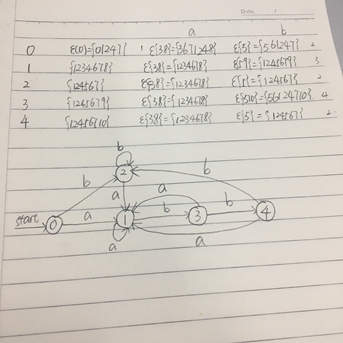 Date. /
a b
0 ε(0)={01247} 1 ε{38}={3671248} ε{5}={561247} 2
1 {1234678} ε{38}={1234678} ε{59}={1245679} 3
2 {124567} ε{38}={1234678} ε{5}={124567} 2
3 {1245679} ε{38}={1234678} ε{510}={56124710} 4
4 {12456710} ε{38}={1234678} ε{5}={124567} 2
b
2
b b
a a
start 0 a 1 b 3 b 4
a a